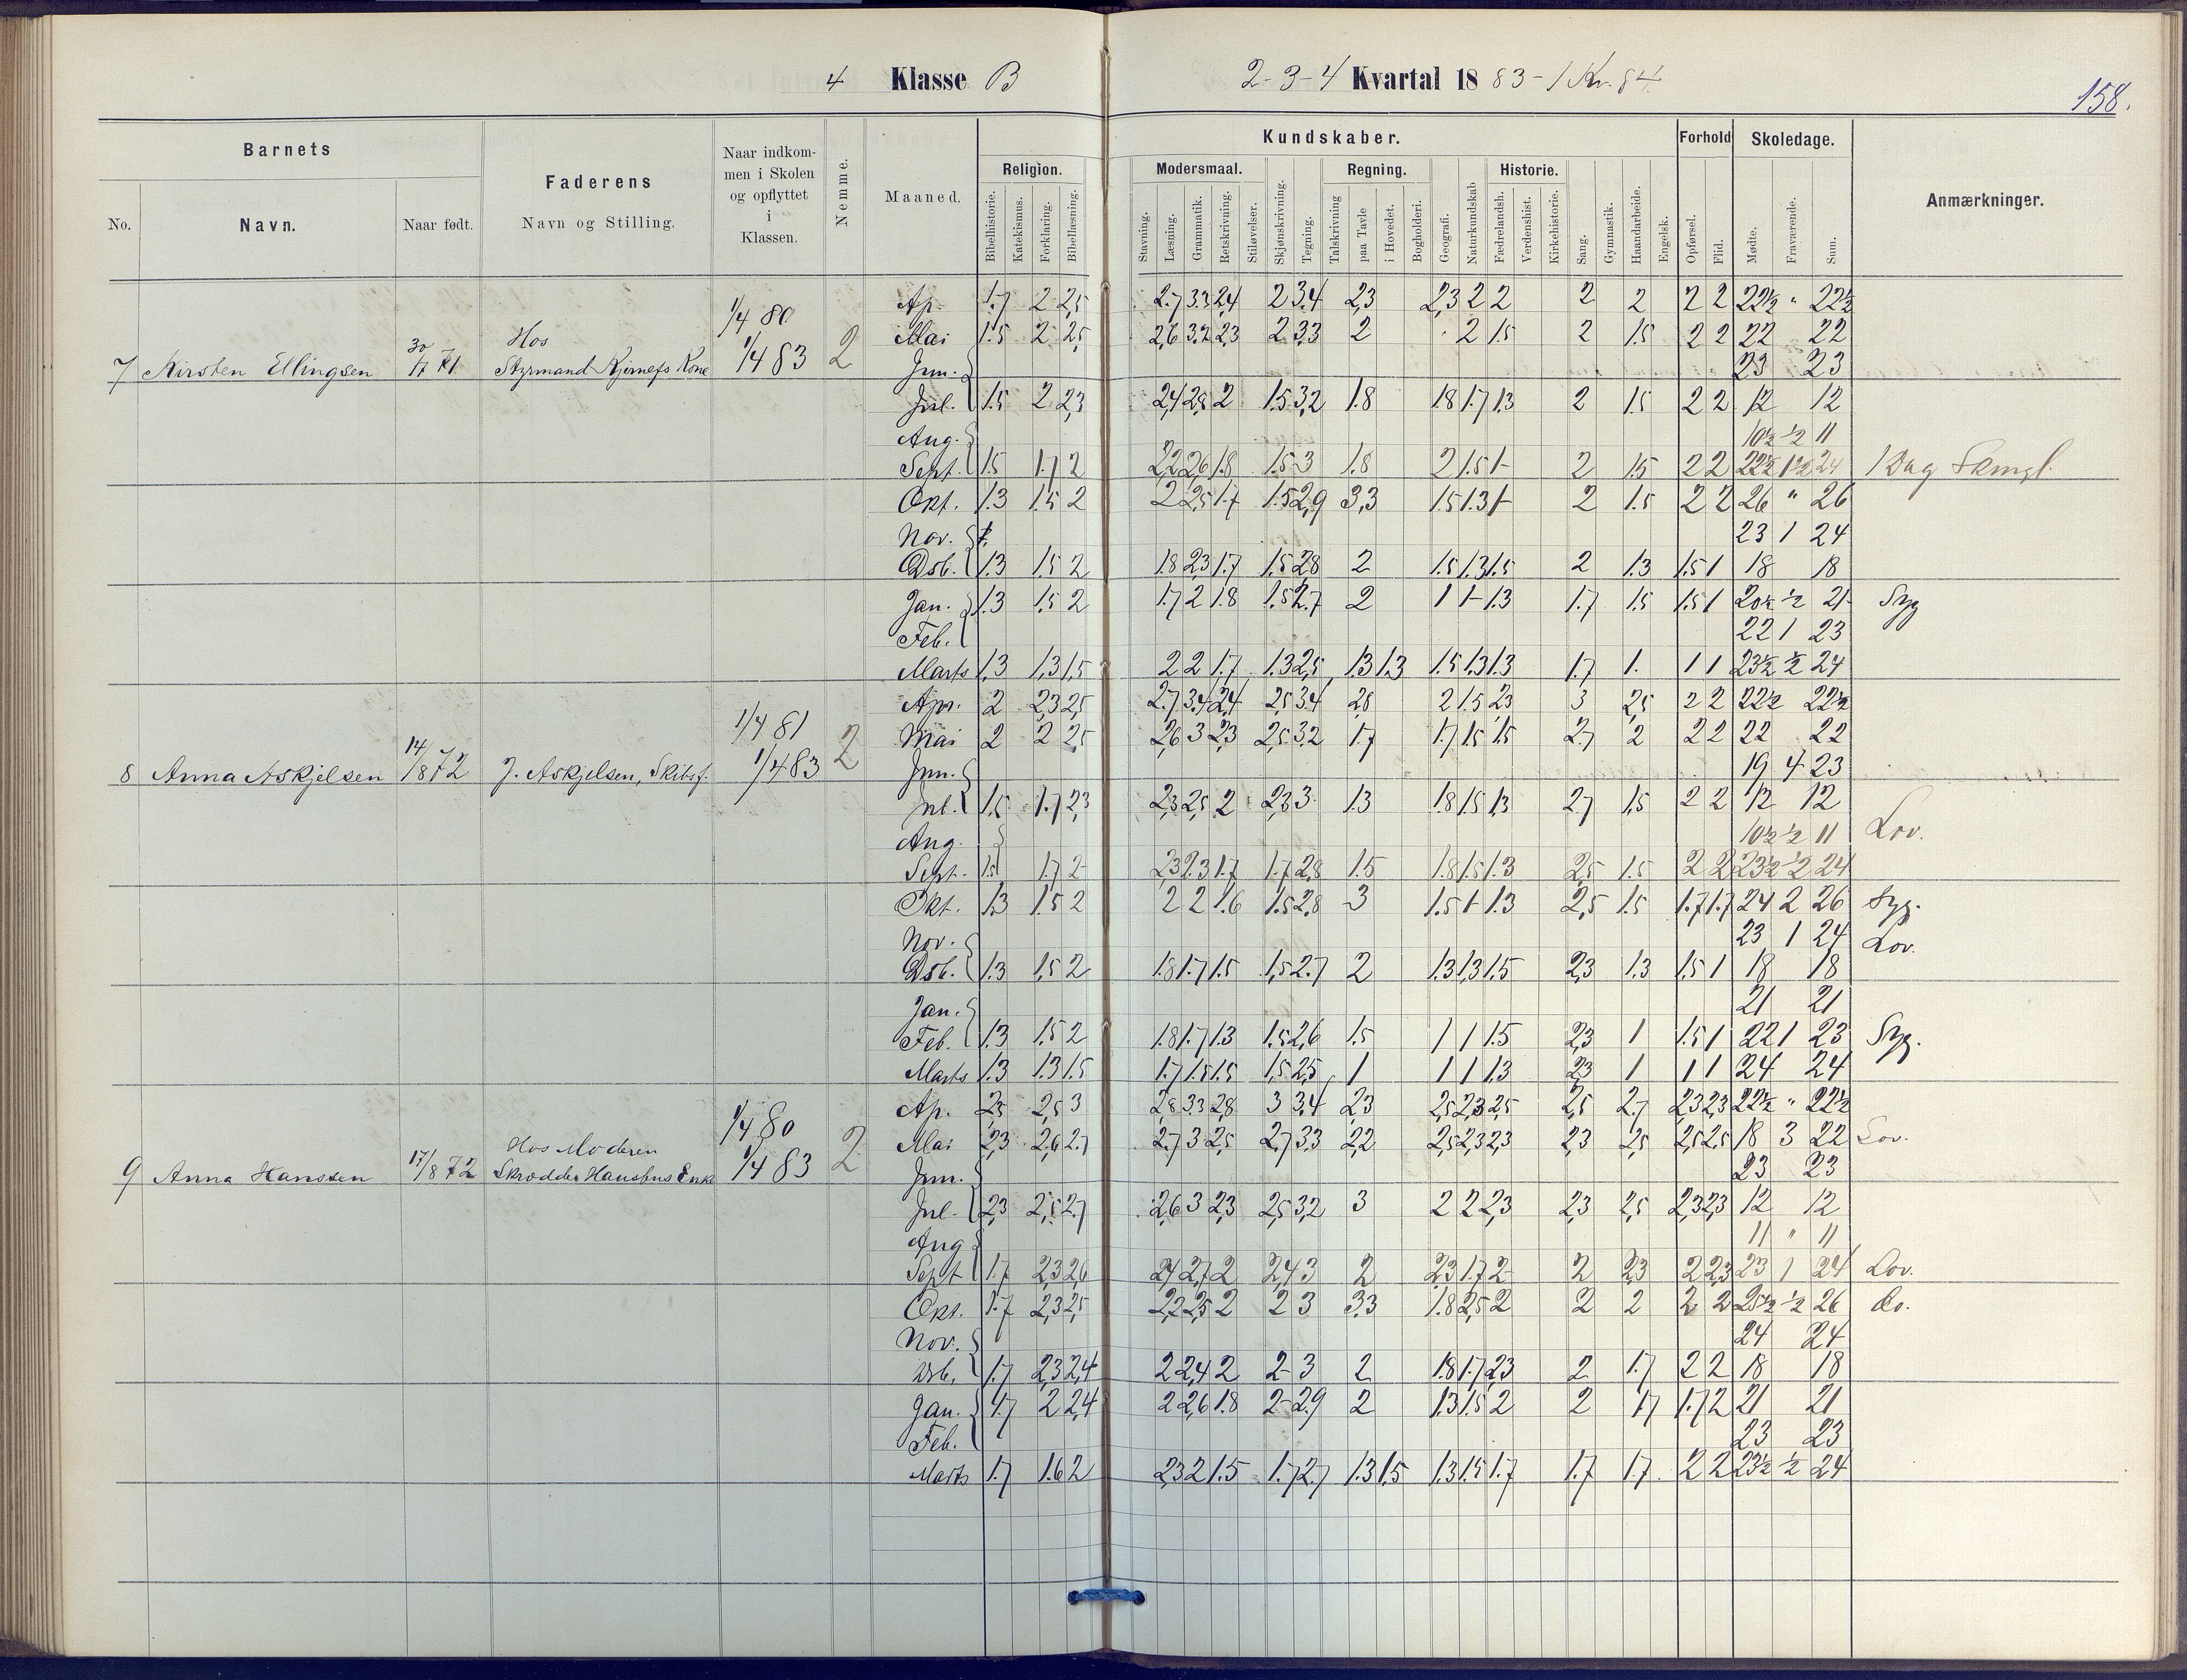 4 Klasse B
2-3-4 Kvartal 1883-1 Kv. 84
158.
Barnets
No.
Navn.
Naar født.
Faderens
Navn og Stilling.
Naar indkom-
men i Skolen
og opflyttet
i
Klassen.
Nemme.
Maaned.
Kundskaber.
Religion.
Bibelhistorie.
Katekismus.
Forklaring.
Bibellæsning.
Modersmaal.
Stavning.
Læsning.
Grammatik.
Retskrivning.
Stiløvelser.
Skjønskrivning.
Tegning.
Regning.
Talskrivning
paa Tavle
i Hovedet.
Bogholderi.
Geografi.
Naturkundskab
Historie.
Fædrelandsh.
Verdenshist.
Kirkehistorie.
Sang.
Gymnastik.
Haandarbeide.
Engelsk.
Forhold
Opførsel.
Flid.
Skoledage.
Mødte.
Fraværende.
Sum.
Anmærkninger.
Ap. 1.7 2 2,5 2.7 3.3 2,4 2 3.4 2,3 2,3 2 2 2 2 2 2 22½ " 22½
1/4 80
Mai 1.5 2 2,5 2,6 3.2 2,3 2 3,3 2 2 1.5 2 1.5 2 2 22 22
7 Kirsten Ellingsen 71 Hos Styrmand Kone 1/4 83 2
Jun. 23 23
Jul. 1.5 2 2,3 2,4 2,8 2 1.5 3,2 1.8 1.8 1.7 1.3 2 1.5 2 2 12 12
Aug. 10½ ½ 11
Sept. 1.5 1.7 2 2,2 2,6 1.8 1.5 3 1.8 2 1.5 1- 2 1.5 2 2 22½ 1½ 24 1 Dag
Okt. 1.3 1.5 2 2 2,5 1.7 1.5 2,9 3,3 1.5 1.3 1- 2 1.5 2 2 26 " 26
Nov. 23 1 24
Dsb. 1.3 1.5 2 1.8 2,3 1.7 1.5 2,8 2 1.5 1.3 1.5 2 1.3 1.5 1 18 18
Jan. 1.3 1.5 2 1.7 2 1.8 1.5 2.7 2 1 1- 1.3 1.7 1.5 1.5 1 20½ ½ 21 Syg
Feb. 22 1 23
Marts 1.3 1.3 1.5 2 2 1.7 1.3 2,5 1.3 1.3 1.5 1.3 1.3 1.7 1. 1 1 23½ ½ 24
Apr. 2 2,3 2,5 2.7 3.4 2,4 2,5 3.4 2,8 2 1.5 2,3 3 2,5 2 2 22½ 22½
1/4 81
Mai 2 2 2,5 2,6 3 2,3 2,5 3,2 1.7 1.7 1.5 1.5 2.7 2 2 2 22 22
8 Anna Askjelsen 14/8 72 J. Askjelsen, Skibsf. 1/4 83 2
Jun. 19 4 23
Jul. 1.5 1.7 2,3 2,3 2,5 2 2,3 3 1.3 1.8 1.5 1.3 2.7 1.5 2 2 12 12
Aug. 10½ ½ 11 Lov.
Sept. 1.5 1.7 2- 2,3 2.3 1.7 1.7 2.8 1.5 1.8 1.5 1.3 2,5 1.5 2 2 23½ ½ 24
Okt. 1.3 1.5 2 2 2 1.6 1.5 2.8 3 1.5 1- 1.3 2,5 1.5 1.7 1.7 24 2 26 Syg.
Nov. 23 1 24 Lov.
Dsb. 1.3 1.5 2 1.8 1.7 1.5 1,5 2.7 2 1.3 1.3 1.5 2,3 1.3 1.5 1 18 18
Jan. 21 21
Feb. 1.3 1.5 2 1.8 1.7 1.3 1.5 2,6 1.5 1 1 1.5 2,3 1 1.5 1 22 1 23 Syg.
Marts 1.3 1.3 1.5 1.7 1.5 1.5 1.5 2,5 1 1 1 1.3 2,3 1 1 1 24 24
Ap. 2,5 2,5 3 2,8 3.3 2,8 3 3,4 2,3 2,5 2,3 2,5 2,5 2.7 2,3 2,3 22½ " 22½
1/4 80
Mai 2,3 2,6 2.7 2.7 3 2,5 2.7 3.3 2,2 2,5 2,3 2,3 2,3 2,5 2,5 2,5 18 3 22 Lov.
9 Anna Hanssen 17/8 72 Hos Moderen Enke 1/4 83 2
Jun. 23 23
Jul. 2,3 2,5 2.7 2,6 3 2,3 2,5 3,2 3 2 2 2,3 2,3 2,5 2,3 2,3 12 12
Aug 11 " 11
Sept 1.7 2,3 2,6 2,4 2,7 2 2,4 3 2 2,3 1.7 2- 2 2,3 2 2,3 23 1 24 Lov.
Okt. 1.7 2,3 2,5 2,2 2,5 2 2 3 3,3 1.8 2,5 2 2 2 2 2 25½ ½ 26 Do.
Nov. 24 24
Dsb. 1.7 2,3 2,4 2 2,4 2 2- 3 2 1.8 1.7 2,3 2 1.7 2 2 18 18
Jan. 1.7 2 2,4 2 2,6 1.8 2- 2.9 2 1.3 1.5 2 2 1.7 1.7 2 21 21
Feb. 23 23
Marts 1.7 1.6 2 2,3 2 1.5 1.7 2.7 1.3 1.5 1.3 1.5 1.7 1.7 1.7 2 2 23½ ½ 24